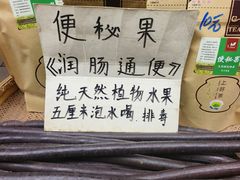 便秘果
《润肠通便》
纯天然植物水果
五厘米泡水喝，排毒
10元
便秘果